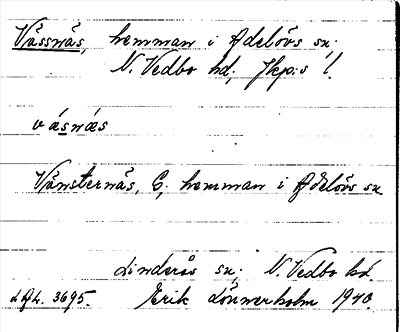 Vässnäs, hemman i Adelövs sn.
N. Vedbo hd, Jkp:s l.
väsnäs
Vänsternäs, C, hemman i Adelövs sn
Linderås sn, N. Vedbo hd.
LAL. 3695. Erik Lönnerholm 1940.